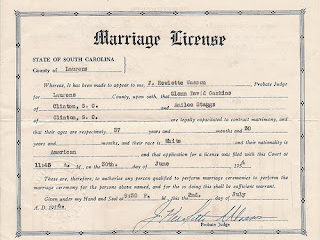 Marriage License
STATE OF SOUTH CAROLINA
County of Laurens
Whereas, It has been made to appear to me, J. Hewlette Wasson Probate Judge
for Laurens County, upon oath, that Glenn David Gaskins
of Clinton, S. C. and Ailee Staggs
of Clinton, S. C. are legally capacitated to contract matrimony, and
that their ages are respectively, 27 years and months and 20
years and months, and their race is White and their nationality is
American and that application for a license was filed with this Court at
11:45 A. M., on the 30th. day of June
These are, therefore, to authorize any person qualified to perform marriage ceremonies to perform the
marriage ceremony for the persons above named, and for the so doing this shall be sufficient warrant.
Given under my Hand and Seal at M. this 2nd. day of July
A. D.
J. Hewlette Wasson
Probate Judge